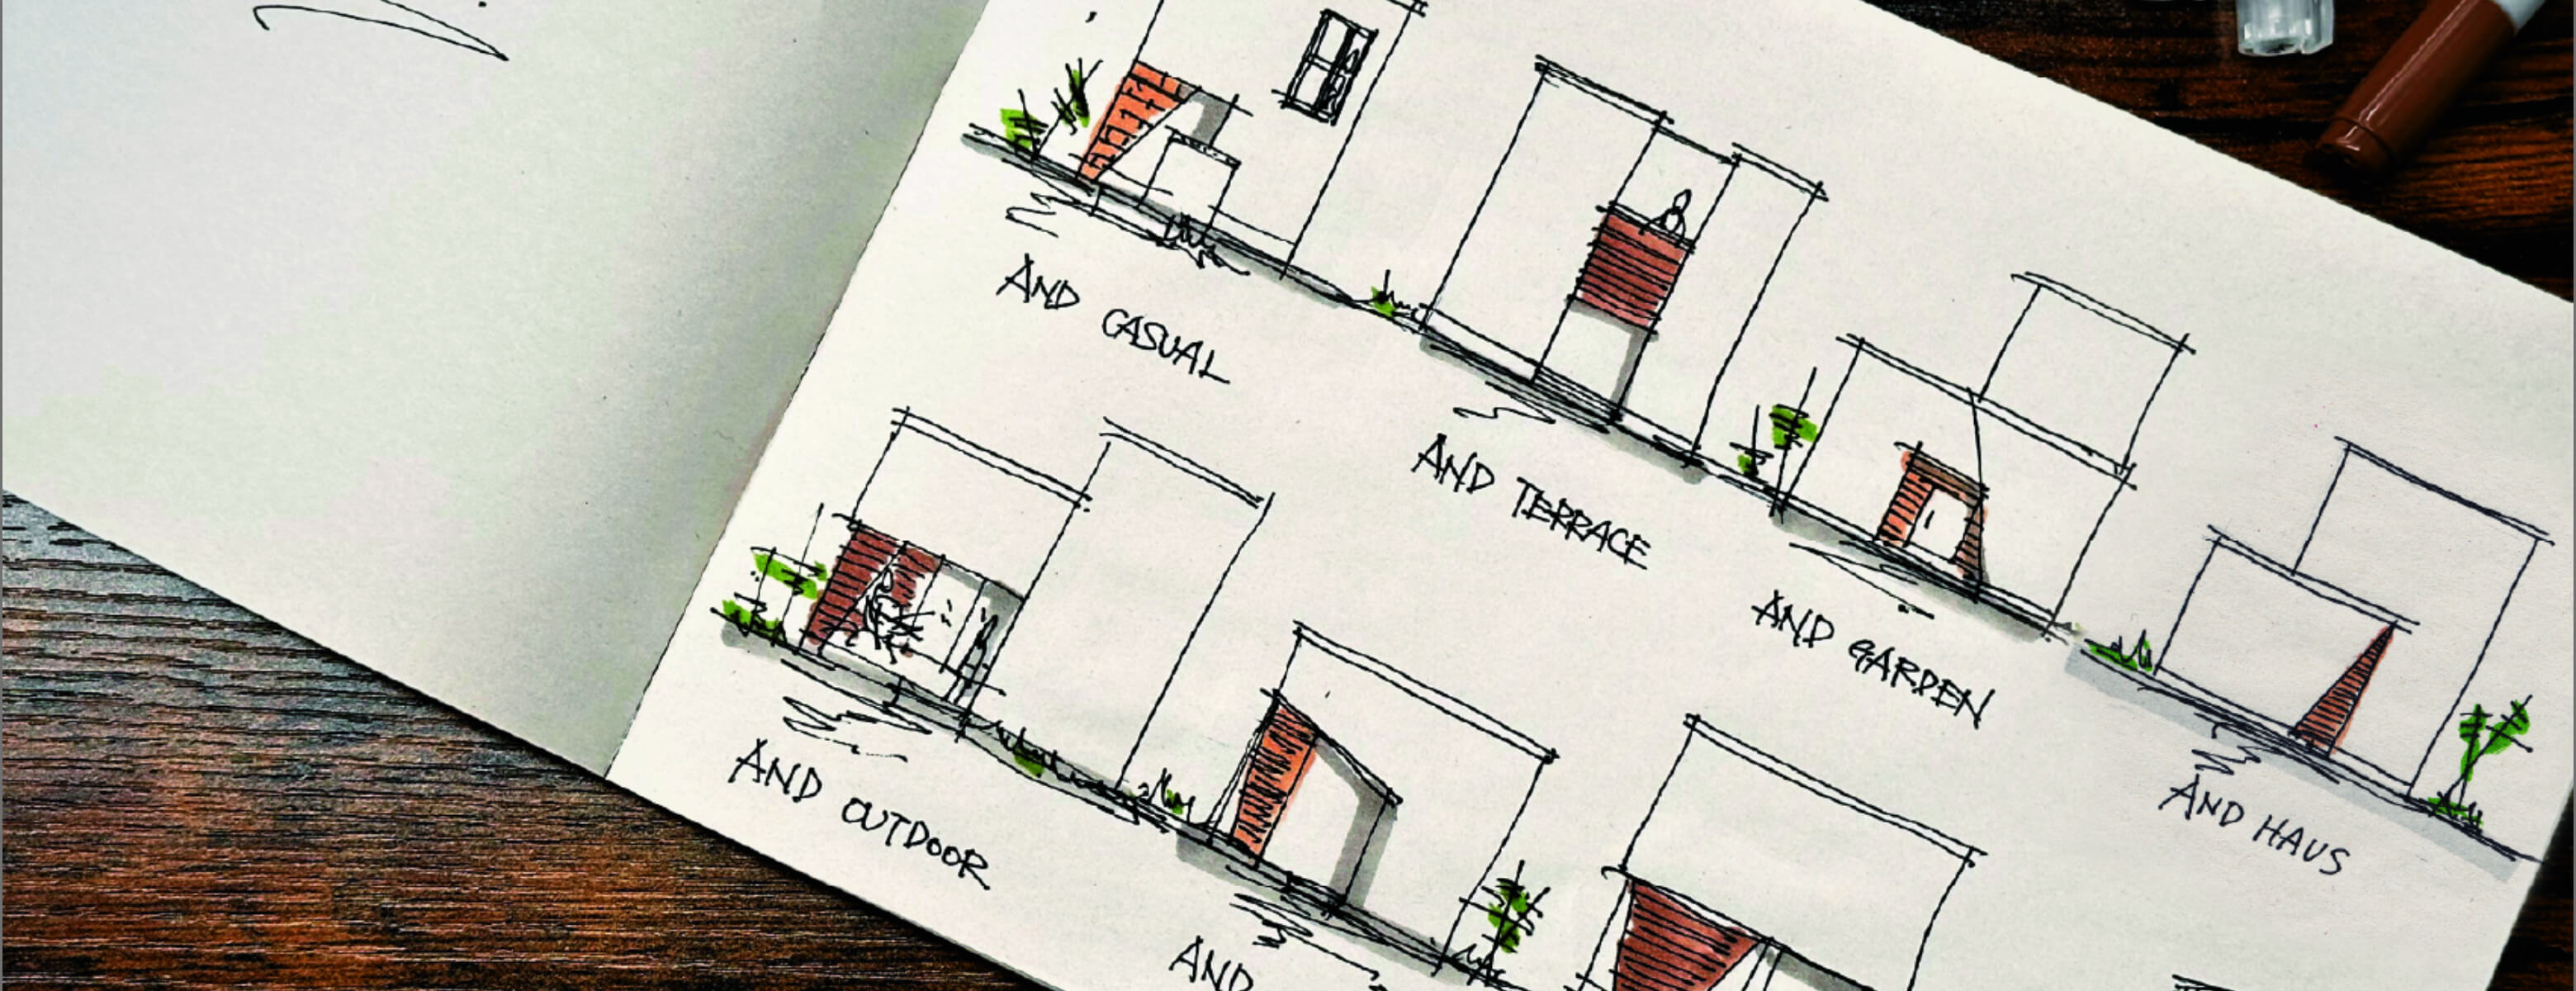 AND CASUAL
AND TERRACE
AND GARDEN
AND HAUS
AND OUTDOOR
AND